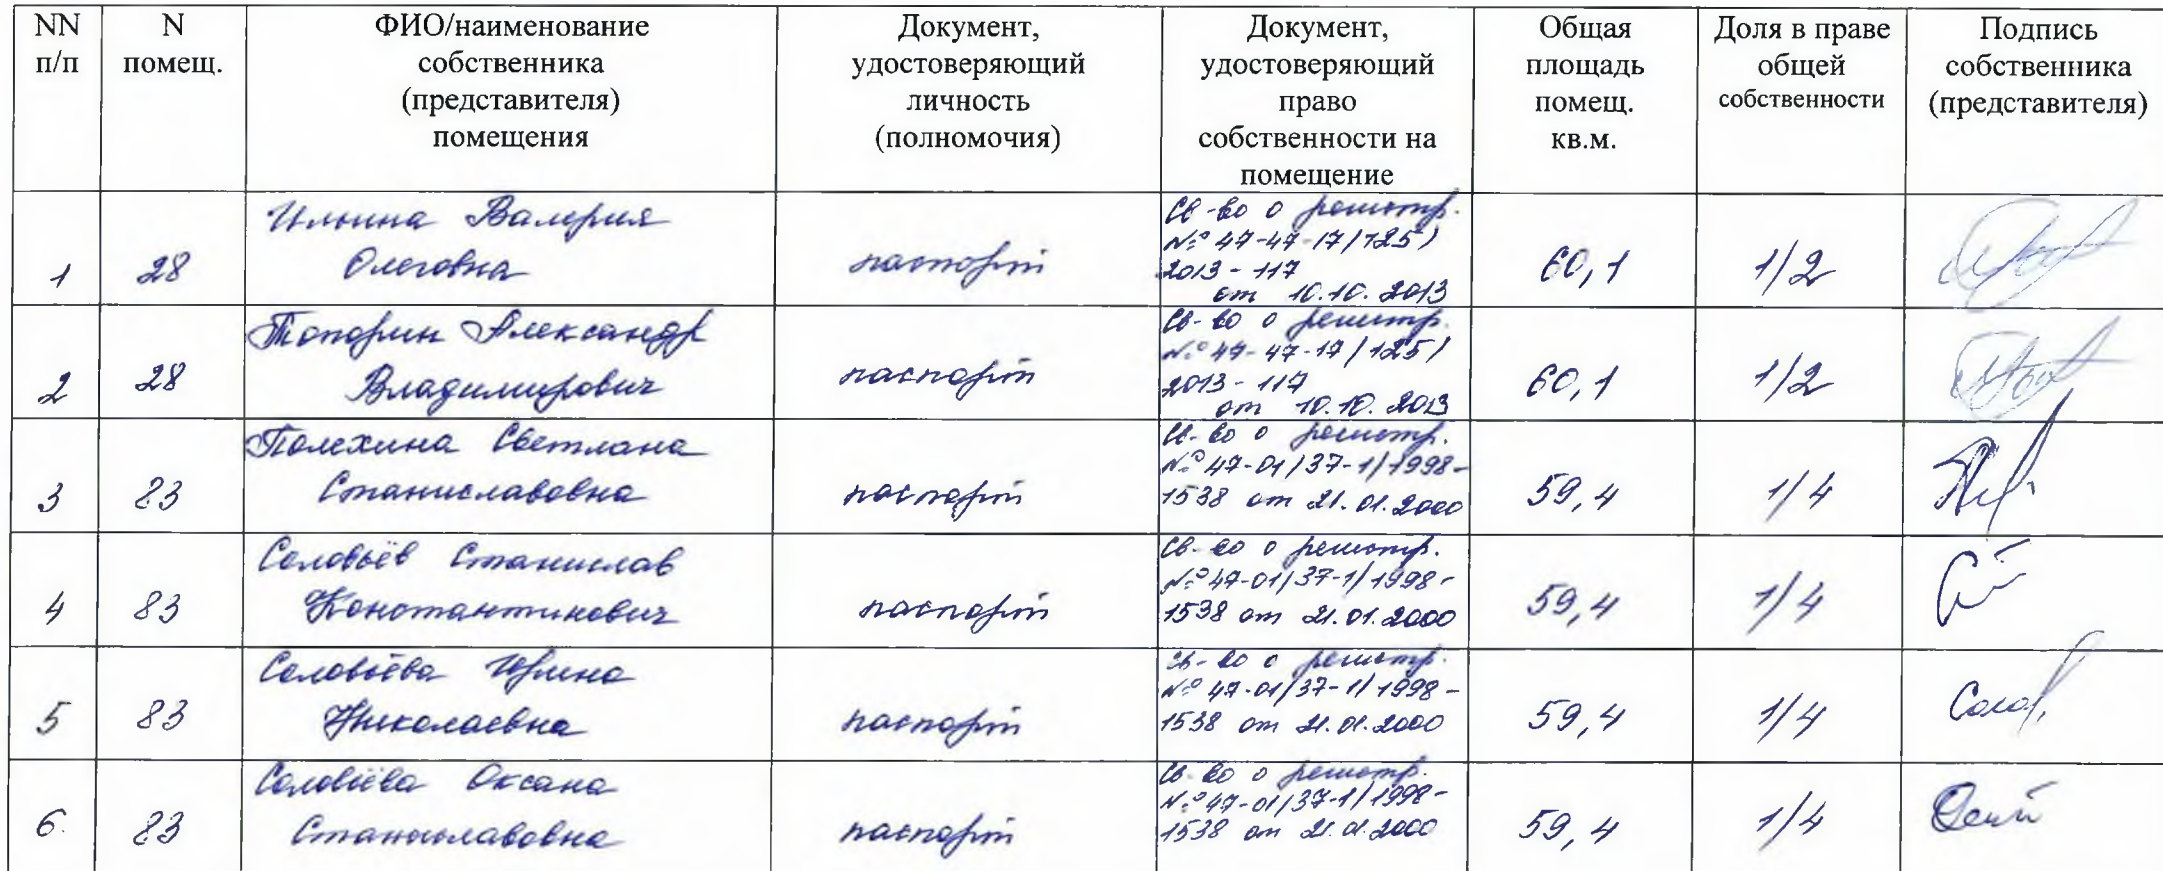 NN п/п
N помещ.
ФИО/наименование собственника (представителя) помещения
Документ, удостоверяющий личность (полномочия)
Документ, удостоверяющий право собственности на помещение
Общая площадь помещ. кв.м.
Доля в праве общей собственности
Подпись собственника (представителя)
1
28
Ильина Валерия
Олеговна
паспорт
Св-во о регистр.
№ 47-47-17/125/
2013-117
от 10.10.2013
60,1
1/2
2
28
Топорин Александр
Владимирович
паспорт
Св-во о регистр.
№ 47-47-17/125/
2013-117
от 10.10.2013
60,1
1/2
3
83
Полехина Светлана
Станиславовна
паспорт
Св-во о регистр.
№ 47-01/37-1/1998-
1538 от 21.01.2000
59,4
1/4
4
83
Соловьёв Станислав
Константинович
паспорт
Св-во о регистр.
№ 47-01/37-1/1998-
1538 от 21.01.2000
59,4
1/4
5
83
Соловьёва Ирина
Николаевна
паспорт
Св-во о регистр.
№ 47-01/37-1/1998-
1538 от 21.01.2000
59,4
1/4
6.
83
Соловьёва Оксана
Станиславовна
паспорт
Св-во о регистр.
№ 47-01/37-1/1998-
1538 от 21.01.2000
59,4
1/4